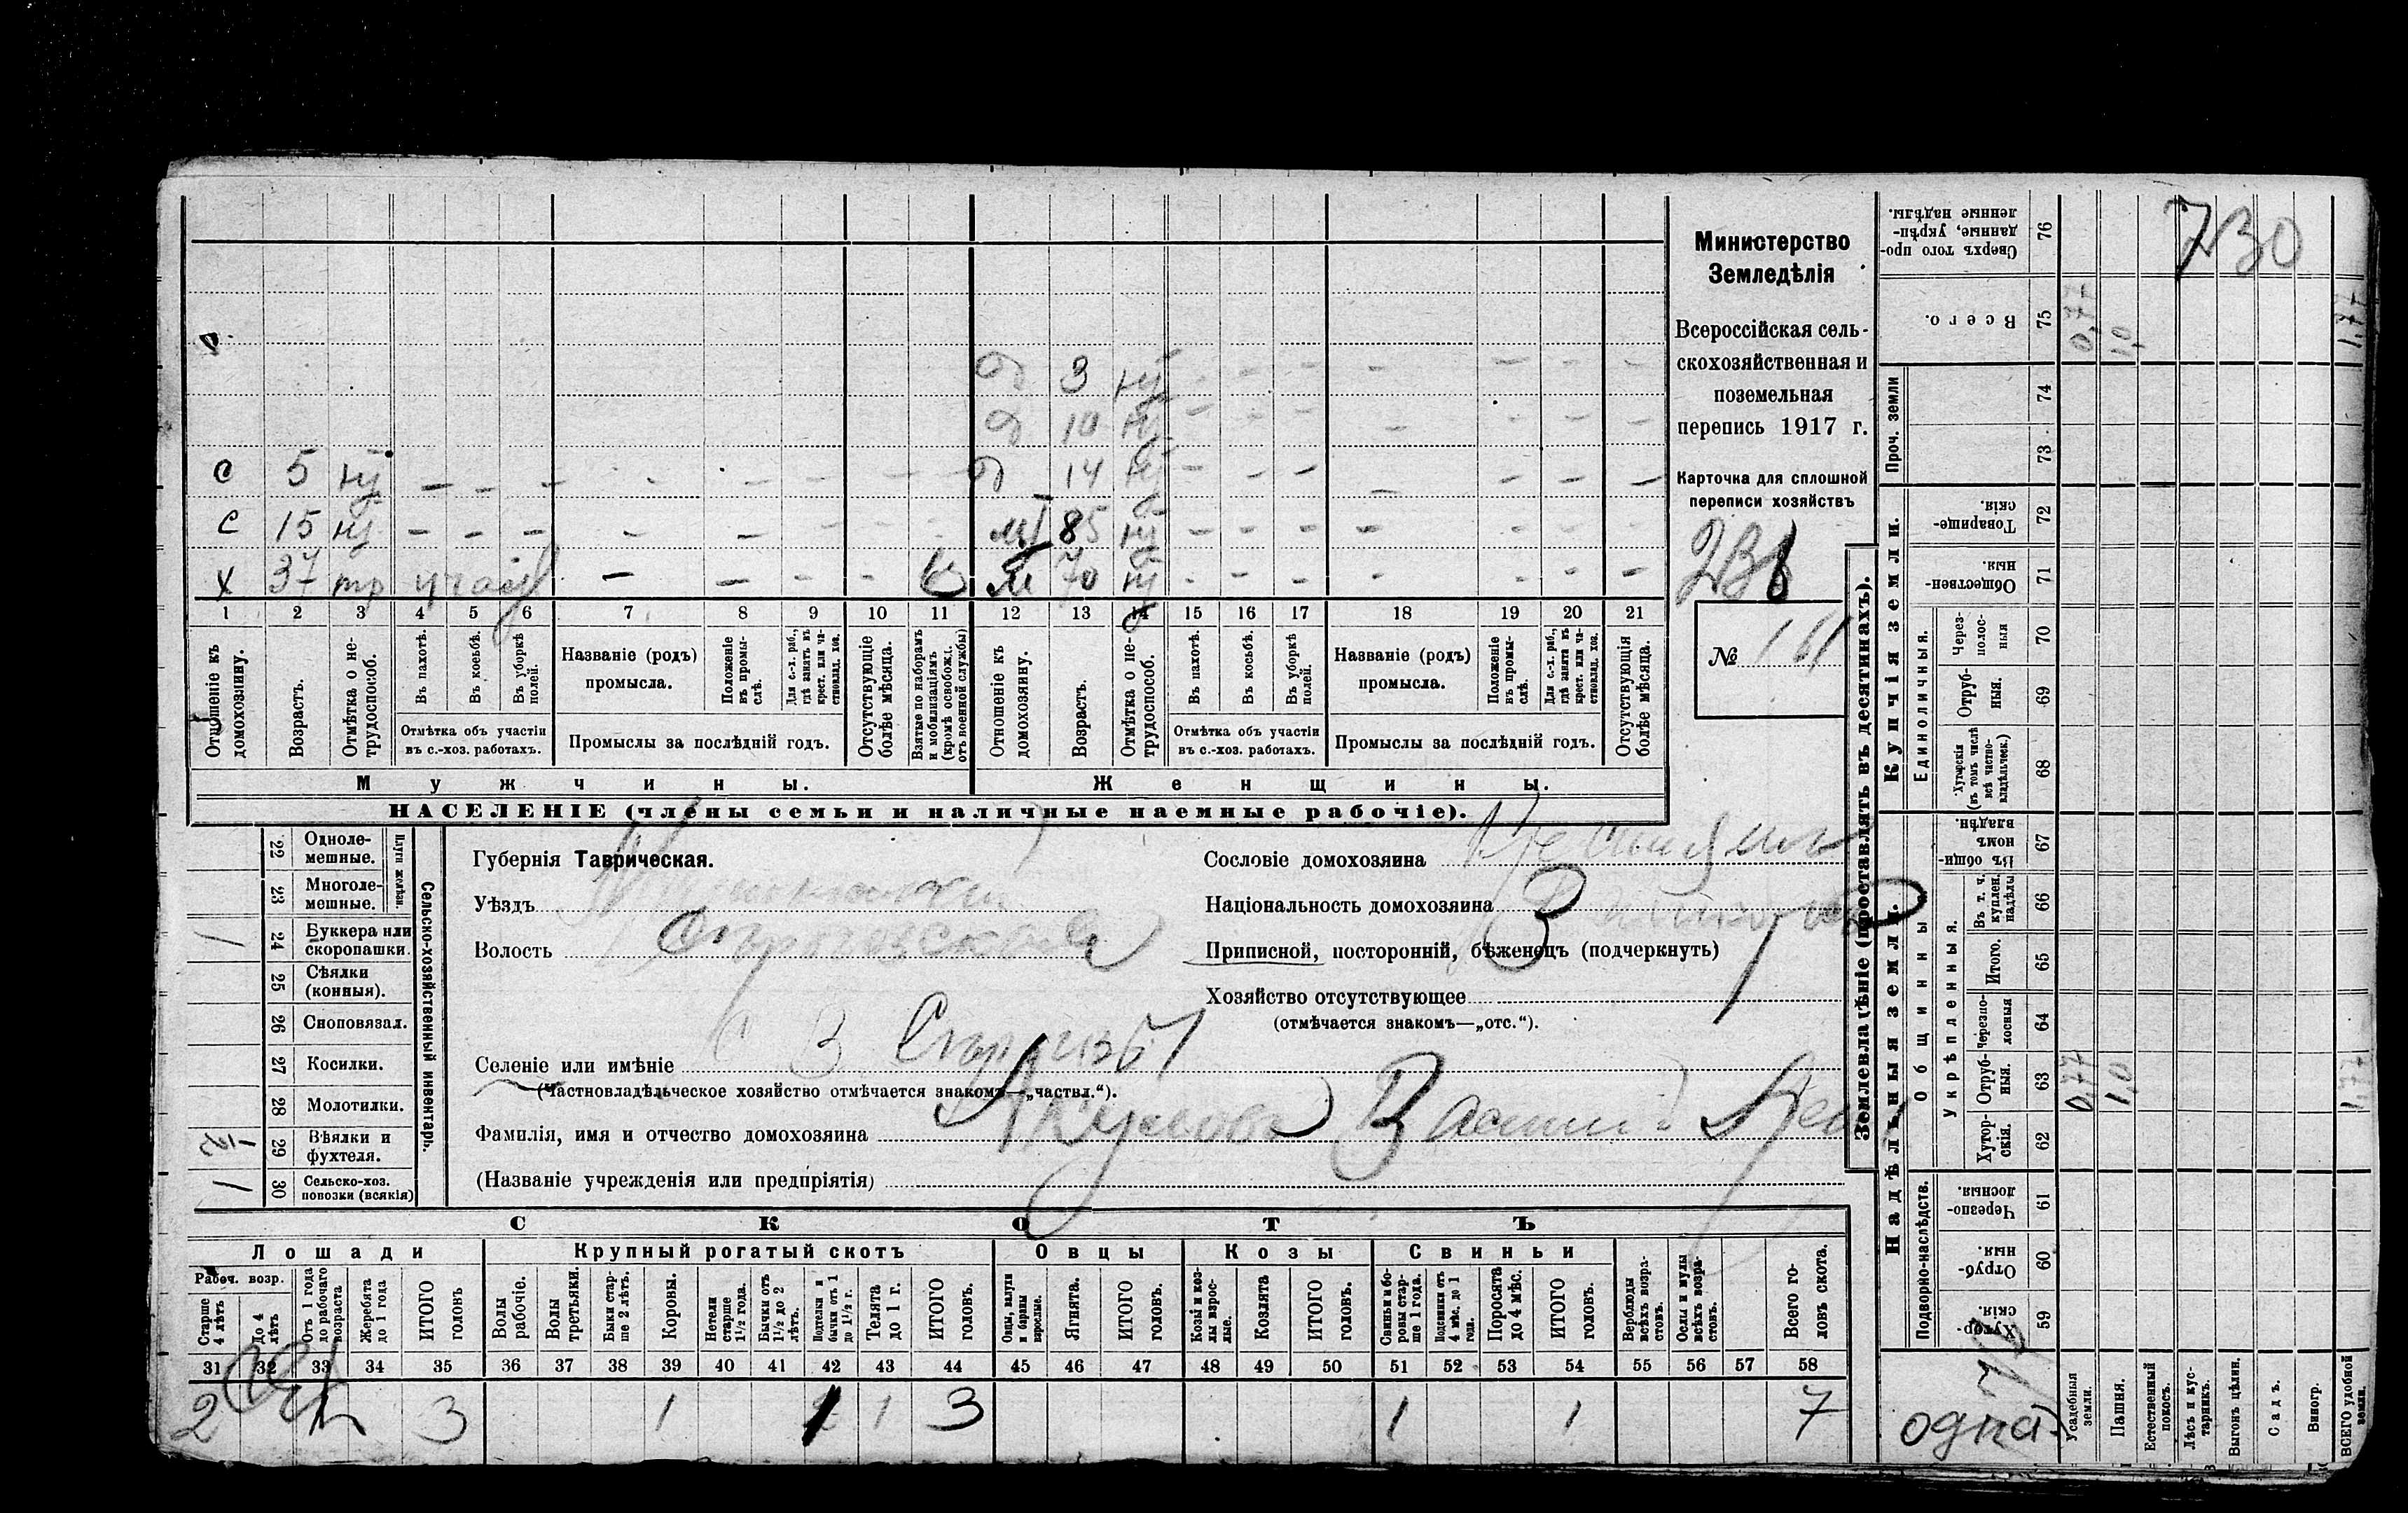 Министерство
Земледѣлія
Всероссійская сель-
скохозяйственная и
поземельная
перепись 1917 г.
Карточка для сплошной
переписи хозяйствъ
№ 161
д 3 нт
д 10 нт
С 5 нт д 14 нт
С 15 нт 85 нт
Х 37 тр м 70 нт
1 2 3 4 5 6 7 8 9 10 11 12 13 14 15 16 17 18 19 20 21
Отношеніе къ домохозяину.
Возрастъ.
Отмѣтка о не-трудоспособ.
Въ пахотѣ.
Въ косьбѣ.
Въ уборкѣ полей.
Отмѣтка объ участіи
въ с.-хоз. работахъ.
Названіе (родъ)
промысла.
Положеніе въ промы-слѣ.
Для с.-х. раб., гдѣ занятъ въ крест. или ча-стновлад. хоз.
Промыслы за послѣдній годъ.
Отсутствующіе болѣе мѣсяца.
Взятые по наборамъ и мобилизаціямъ (кромѣ освобожд. отъ военной службы)
Отношеніе къ домохозяину.
Возрастъ.
Отмѣтка о не-трудоспособ.
Въ пахотѣ.
Въ косьбѣ.
Въ уборкѣ полей.
Отмѣтка объ участіи
въ с.-хоз. работахъ.
Названіе (родъ)
промысла.
Положеніе въ промы-слѣ.
Для с.-х. раб., гдѣ занята въ крест. или ча-стновлад. хоз.
Промыслы за послѣдній годъ.
Отсутствующія болѣе мѣсяца.
Мужчины. Женщины.
НАСЕЛЕНІЕ (члены семьи и наличные наемные рабочіе).
Сельско-хозяйственный инвентарь.
Плуги желѣзн.
22 Одноле-мешные.
23 Многоле-мешные.
1 24 Буккера или скоропашки.
25 Сѣялки (конныя).
26 Сноповязал.
27 Косилки.
28 Молотилки.
1/2 29 Вѣялки и фухтеля.
1 30 Сельско-хоз. повозки (всякія)
Губернія Таврическая.
Уѣздъ
Волость
Селеніе или имѣніе
(Частновладѣльческое хозяйство отмѣчается знакомъ—„частвл.“).
Фамилія, имя и отчество домохозяина
(Названіе учрежденія или предпріятія)
Сословіе домохозяина
Національность домохозяина
Приписной, посторонній, бѣженецъ (подчеркнуть)
Хозяйство отсутствующее
(отмѣчается знакомъ—„отс.“).
СКОТЪ
Лошади Крупный рогатый скотъ Овцы Козы Свиньи
Рабоч. возр.
Старше 4 лѣтъ
До 4 лѣтъ
Отъ 1 года до рабочаго возраста
Жеребята до 1 года
ИТОГО головъ
Волы рабочіе.
Волы третьяки.
Быки стар-ше 2 лѣтъ.
Коровы.
Нетели старше 1½ года.
Бычки отъ 1½ до 2 лѣтъ.
Подтелки и бычки отъ 1 до 1½ г.
Телята до 1 г.
ИТОГО головъ.
Овцы, валухи и бараны взрослые.
Ягнята.
ИТОГО головъ.
Козы и коз-лы взрос-лые.
Козлята
ИТОГО головъ.
Свиньи и бо-ровы стар-ше 1 года.
Подсвинки отъ 4 мѣс. до 1 года.
Поросята до 4 мѣс.
ИТОГО головъ.
Верблюды всѣхъ возра-стовъ.
Ослы и мулы всѣхъ возра-стовъ.
Всего го-ловъ скота.
31 32 33 34 35 36 37 38 39 40 41 42 43 44 45 46 47 48 49 50 51 52 53 54 55 56 57 58
2 1 3 1 1 1 3 1 1 7
Землевладѣніе (проставлять въ десятинахъ).
Надѣльныя земли. Купчія земли. Проч. земли
Подворно-наслѣдств.
Общинныя.
Укрѣпленныя.
Единоличныя.
59 Хутор-скія.
60 Отруб-ныя.
61 Черезпо-лосныя.
62 Хутор-скія.
63 Отруб-ныя. 0,77 1,0 1,77
64 Черезпо-лосныя
65 Итого.
66 Въ т. ч. куплен. надѣлы
67 Въ общи-номъ владѣн.
68 Хуторскія (въ томъ числѣ всѣ частно-владѣльческ.)
69 Отруб-ныя.
70 Через-полос-ныя
71 Обществен-ныя.
72 Товарище-скія.
73
74
75 Всего. 0,77 1,0 1,77
76 Сверхъ того про-данные, укрѣп-ленные надѣлы.
730
Усадебныя земли.
Пашня.
Естественный покосъ.
Лѣсъ и кус-тарникъ.
Выгонъ цѣлин.
Садъ.
Виногр.
ВСЕГО удобной земли.
одна